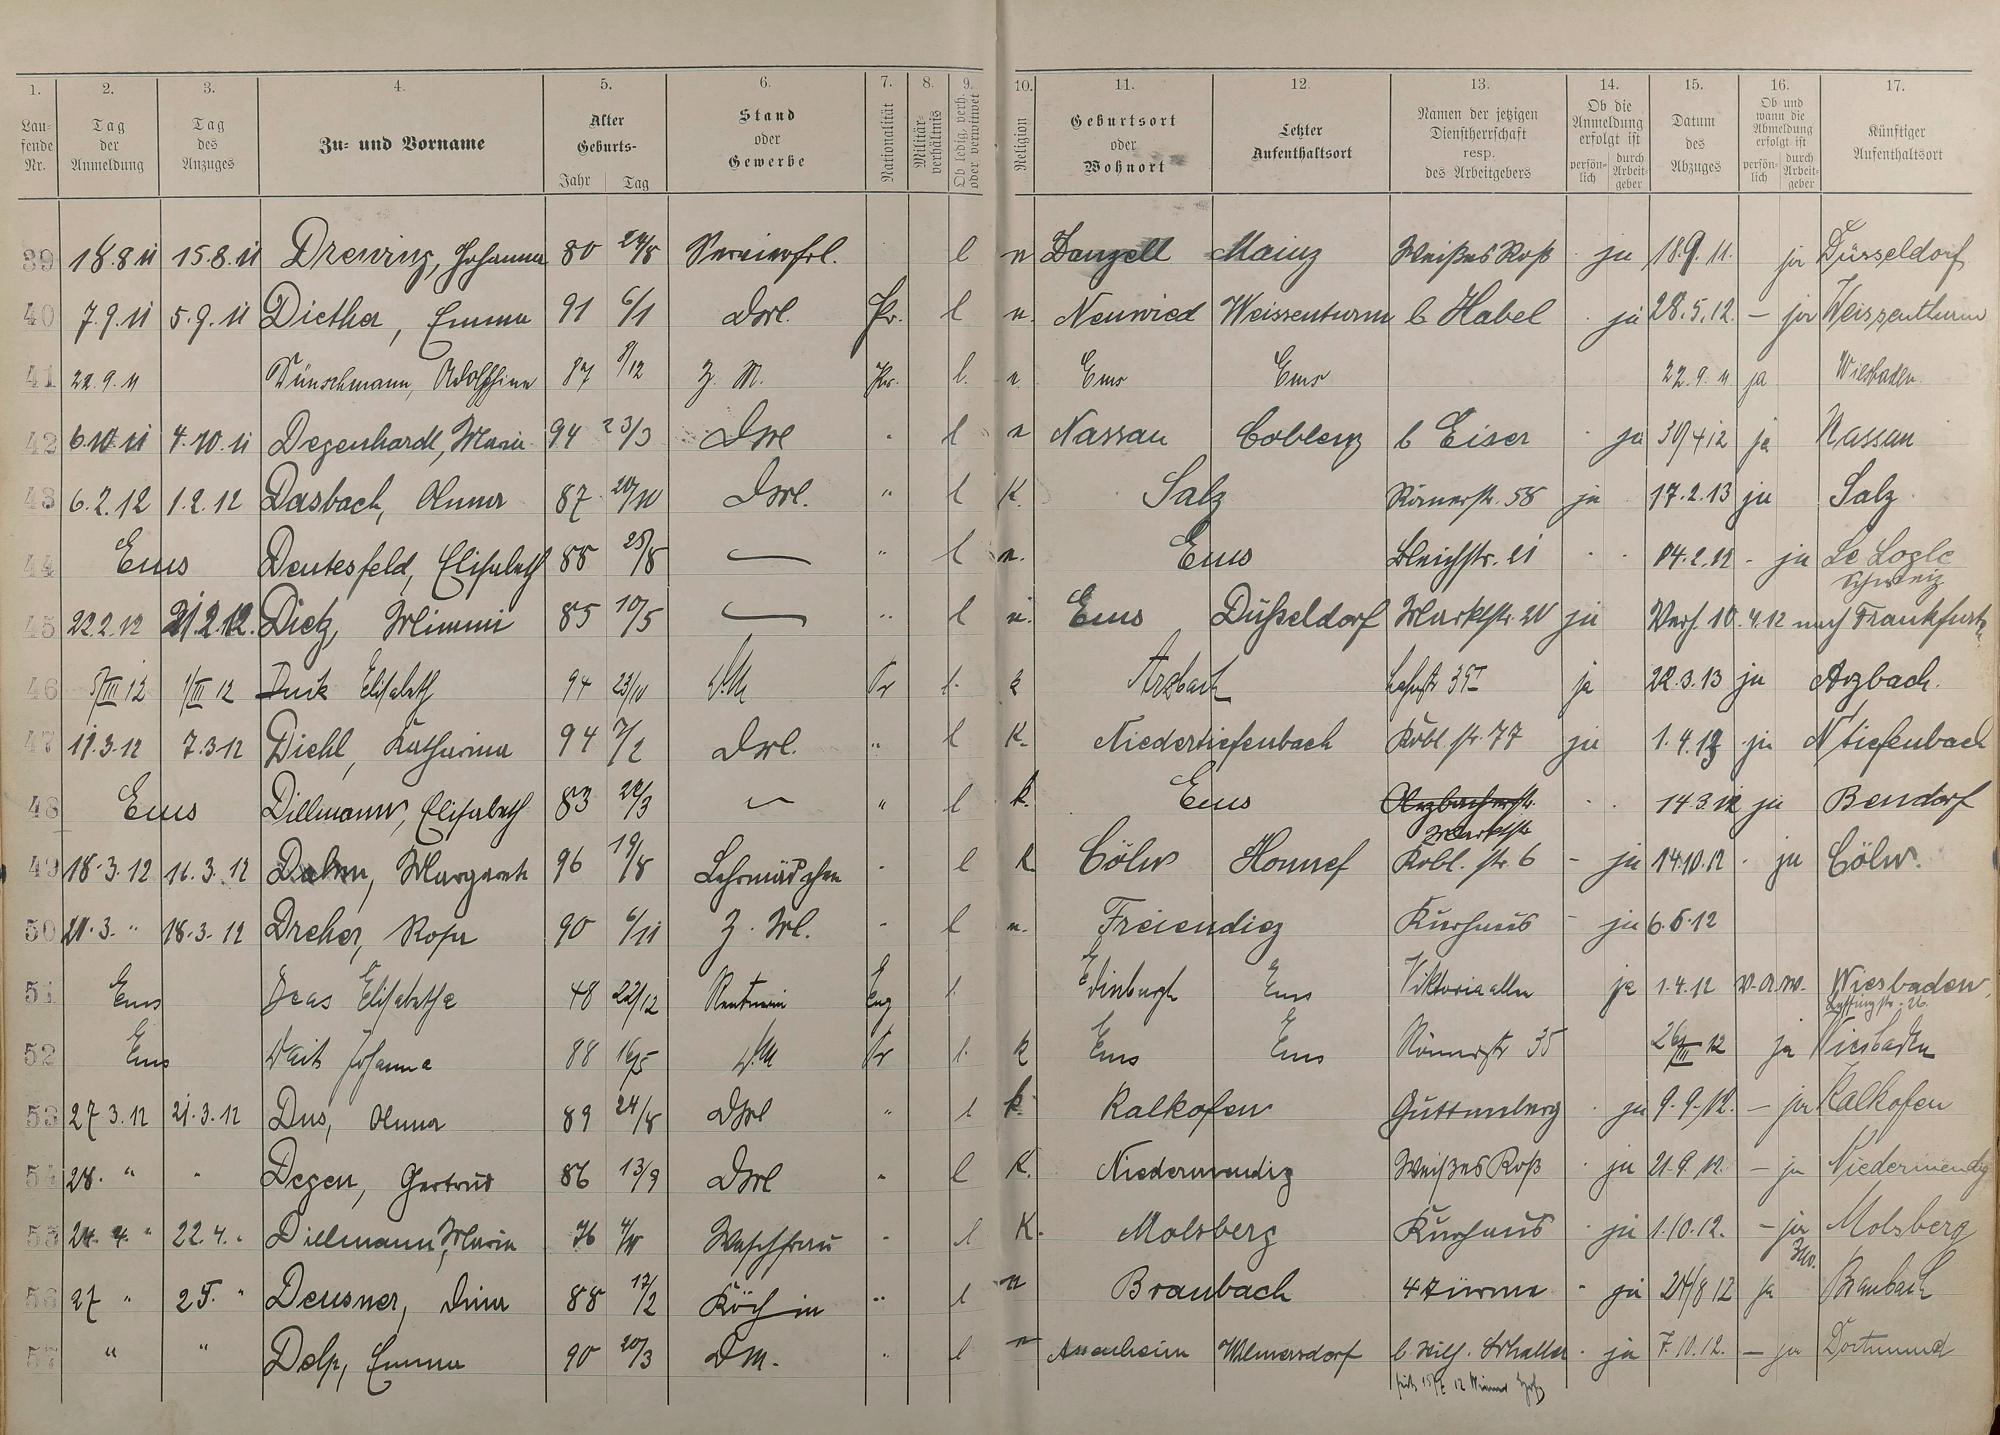 1. 2. 3. 4. 5. 6. 7. 8. 9. 10. 11. 12. 13. 14. 15. 16. 17.
Lau-fende Nr. Tag der Anmeldung Tag des Anzuges Zu- und Vorname Alter Geburts- Jahr Tag Stand oder Gewerbe Nationalität Militär-verhältnis Ob ledig, verh. oder verwitwet Religion Geburtsort oder Wohnort Letzter Aufenthaltsort Namen der jetzigen Dienstherrschaft resp. des Arbeitgebers Ob die Anmeldung erfolgt ist persön-lich durch Arbeit-geber Datum des Abzuges Ob und wann die Abmeldung erfolgt ist persön-lich durch Arbeit-geber Künftiger Aufenthaltsort
39 18.8 11 15.8.11 Drewing, Johanna 80 24/8 Servierfrl. l Mainz Weißes Roß ja 18.9.11. ja Düsseldorf
40 7.9.11 5.9.11 Diether, Emma 91 6/1 Pr. l Neuwied Weissenturm b Habel ja 28.5.12. – ja Weissenthurm
41 22.9.11 Dünschmann, Adolfine 87 8/12 Z. M. Pr. l. Ems Ems 22.9.11 ja Wiesbaden
42 6.10.11 4.10.11 Degenhardt, Marie 94 23/3 l Nassau Coblenz b Eiser ja 30/4 12 ja Nassau
43 6.2.12 1.2.12 Dasbach, Anna 87 20/10 " l K. Salz Römerstr. 58 ja 17.2.13 ja Salz
44 Ems Deutesfeld, Elisabeth 88 25/8 – " l Ems Bleichstr. 21 14.2.12 - ja Le Logle Schweiz
45 22.2.12 21.2.12. Dietz, Mimmi 85 10/5 – " l Ems Düßeldorf Marktstr. 20 ja 10.4.12 nach Frankfurt
46 5/III 12 1/III 12 Elisabeth 94 Pr l. k Arzbach ja 22.3.13 ja Arzbach.
47 11.3.12 7.3.12 Diehl, Katharina 94 7/2 " l K. Niedertiefenbach Kobl. str. 77 ja 1.4.13 ja Ntiefenbach
48 Ems Dillmann, Elisabeth 83 22/3 – " l k. Ems Arzbacherstr. Marktstr 14.3.12 ja Bendorf
49 18.3.12 16.3.12 Dahm, Margareth 96 19/8 Lehrmädchen l K Cöln Honnef Kobl. str. 6 - ja 14.10.12 ja Cöln.
50 21.3. " 18.3.12 Dreher, Rosa 90 6/11 Z. l Freiendiez Kurhaus - ja 6.5.12
51 Ems Elisabetha 48 22/12 Rentnerin Eng l. Edinburgh Ems Viktoriaallee ja 1.4.12 Wiesbaden,
52 Ems Johanna 88 16/5 Pr l. k Ems Ems Römerstr 35 12 ja Wiesbaden
53 27.3.12 21.3.12 Dus, Anna 89 24/8 " l k. Kalkofen Guttenberg ja 9.9.12. – ja Kalkofen
54 28. " " Degen, Gertrud 86 13/9 " l K. Niedermendig Weißes Roß ja 21.9.12. – ja Niedermendig
55 24. 4. " 22.4. " Dillmann, Maria 76 Waschfrau l K. Molsberg Kurhaus ja 1.10.12. – ja Molsberg
56 27 " 25. " Deusner, Dina 88 17/2 Köchin " l Braubach 4 Türme - ja 24/8 12 ja Braubach
57 " " Delp, Emma 90 20/3 DM. " l Assenheim Wilmersdorf ja 7.10.12. – ja Dortmund